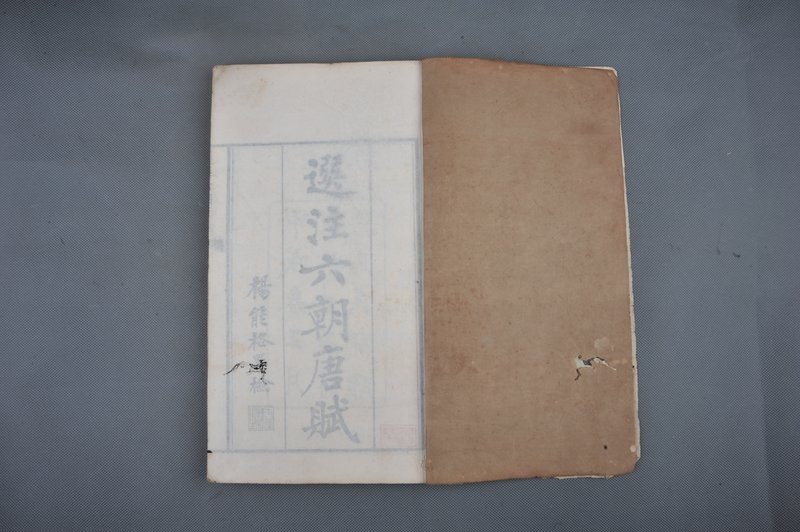 選注六朝唐賦
楊能格